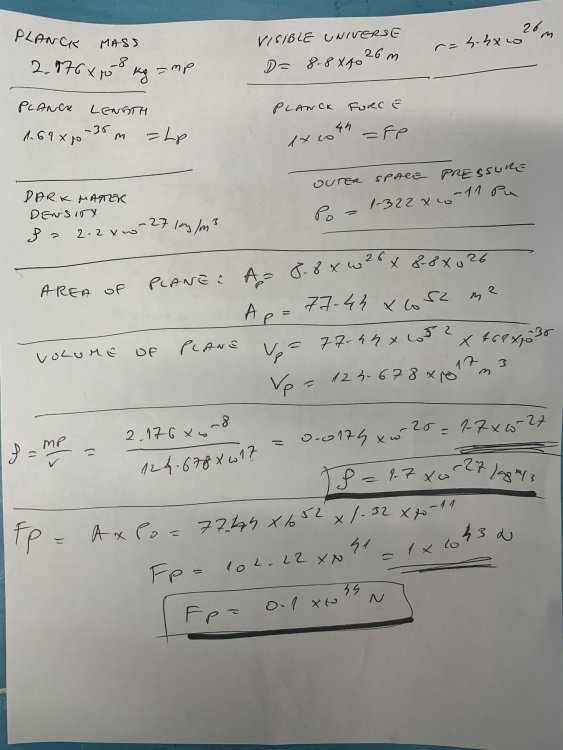 PLANCK MASS
2.176 × 10⁻⁸ kg = mp
VISIBLE UNIVERSE
D = 8.8 × 10²⁶ m r = 4.4 × 10²⁶ m
PLANCK LENGTH
1.61 × 10⁻³⁵ m = Lp
PLANCK FORCE
1 × 10⁴⁴ = Fp
DARK MATTER
DENSITY
ρ = 2.2 × 10⁻²⁷ kg/m³
OUTER SPACE PRESSURE
P₀ = 1.322 × 10⁻¹¹ Pa
AREA OF PLANE: Ap = 8.8 × 10²⁶ × 8.8 × 10²⁶
Ap = 77.44 × 10⁵² m²
VOLUME OF PLANE Vp = 77.44 × 10⁵² × 1.61 × 10⁻³⁵
Vp = 124.678 × 10¹⁷ m³
ρ = mp/v = 2.176 × 10⁻⁸ / 124.678 × 10¹⁷ = 0.0174 × 10⁻²⁵ = 1.7 × 10⁻²⁷
ρ = 1.7 × 10⁻²⁷ kg m/3
Fp = A × P₀ = 77.44 × 10⁵² × 1.32 × 10⁻¹¹
Fp = 102.22 × 10⁴¹ = 1 × 10⁴³ N
Fp = 0.1 × 10⁴⁴ N